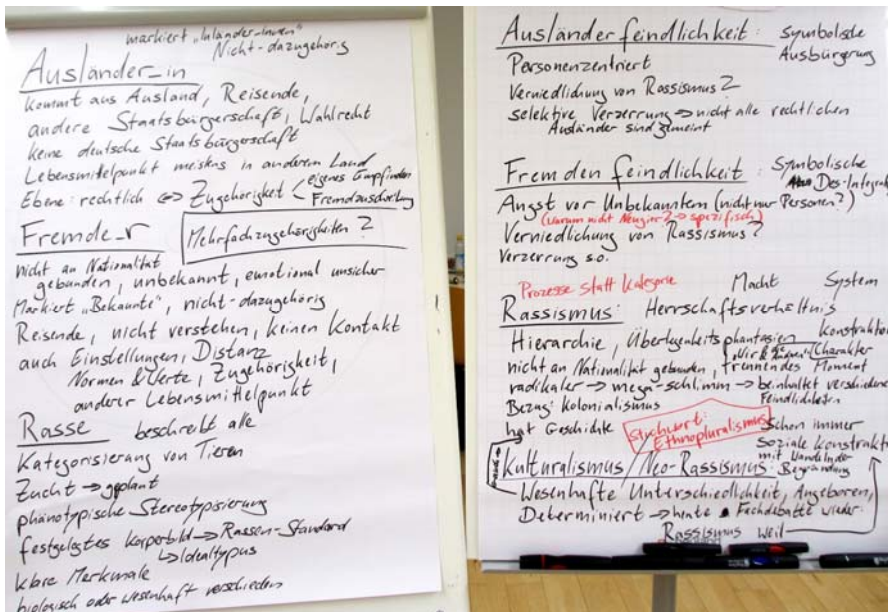 markiert "Inländer-innen"
Nicht-dazugehörig
Ausländer_in
kommt aus Ausland, Reisende,
andere Staatsbürgerschaft, Wahlrecht
keine deutsche Staatsbürgerschaft
Lebensmittelpunkt meistens in anderem Land
Ebene: rechtlich <=> Zugehörigkeit < eigenes Empfinden
Fremdzuschreibung
Fremde_r
Mehrfachzugehörigkeiten?
nicht an Nationalität
gebunden, unbekannt, emotional unsicher
Markiert "Bekannte", nicht-dazugehörig
Reisende, nicht verstehen, keinen Kontakt
auch Einstellungen, Distanz
Normen & Werte, Zugehörigkeit,
anderer Lebensmittelpunkt
Rasse beschreibt alle
Kategorisierung von Tieren
Zucht → geplant
phänotypische Stereotypisierung
festgelegtes Körperbild → Rassen-Standard
↳ Idealtypus
klare Merkmale
biologisch oder wesenhaft verschieden
Ausländerfeindlichkeit: Symbolische
Ausbürgerung
Personenzentriert
Verniedlichung von Rassismus?
selektive Verzerrung → nicht alle rechtlichen
Ausländer sind gemeint
Fremdenfeindlichkeit: Symbolische
Des-Integrat
Angst vor Unbekanntem (nicht nur Personen?)
(Warum nicht Neugier? → spezifisch)
Verniedlichung von Rassismus?
Verzerrung s.o.
Prozesse statt Kategorie Macht System
Rassismus: Herrschaftsverhältnis
Hierarchie, Überlegenheitsphantasien Konstruktion
"Wir & Andere" Charakter
nicht an Nationalität gebunden, trennendes Moment
radikaler → mega-schlimm → beinhaltet verschiedene
Feindlichkeiten
Bezug: Kolonialismus
hat Geschichte
Stichwort:
Ethnopluralismus
Schon immer
soziale Konstrukt
mit wandelnder
Begründung
Kulturalismus/Neo-Rassismus:
Wesenhafte Unterschiedlichkeit, Angeboren,
Determiniert → heute Fachdebatte wieder:
Rassismus weil